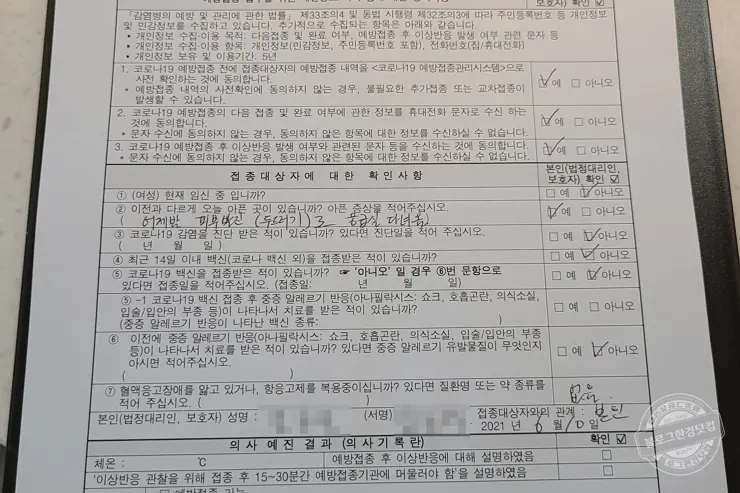 보호자) 확인 ☑
「감염병의 예방 및 관리에 관한 법률」 제33조의4 및 동법 시행령 제32조의3에 따라 주민등록번호 등 개인정보
및 민감정보를 수집하고 있습니다. 추가적으로 수집되는 항목은 아래와 같습니다.
• 개인정보 수집·이용 목적: 다음접종 및 완료 여부, 예방접종 후 이상반응 발생 여부 관련 문자 등
• 개인정보 수집·이용 항목: 개인정보(민감정보, 주민등록번호 포함), 전화번호(집/휴대전화)
• 개인정보 보유 및 이용기간: 5년
1. 코로나19 예방접종 전에 접종대상자의 예방접종 내역을 <코로나19 예방접종관리시스템>으로
사전 확인하는 것에 동의합니다. ☑예 □아니오
* 예방접종 내역의 사전확인에 동의하지 않는 경우, 불필요한 추가접종 또는 교차접종이
발생할 수 있습니다.
2. 코로나19 예방접종의 다음 접종 및 완료 여부에 관한 정보를 휴대전화 문자로 수신 하는
것에 동의합니다. ☑예 □아니오
* 문자 수신에 동의하지 않는 경우, 동의하지 않은 항목에 대한 정보를 수신하실 수 없습니다.
3. 코로나19 예방접종 후 이상반응 발생 여부와 관련된 문자 등을 수신하는 것에 동의합니다. ☑예 □아니오
* 문자 수신에 동의하지 않는 경우, 동의하지 않은 항목에 대한 정보를 수신하실 수 없습니다.
접종대상자에 대한 확인사항 본인(법정대리인, 보호자) 확인 ☑
① (여성) 현재 임신 중 입니까? □예 ☑아니오
② 이전과 다르게 오늘 아픈 곳이 있습니까? 아픈 증상을 적어주십시오. ☑예 □아니오
( 어제밤 피부발진 (두드러기)로 응급실 다녀옴 )
③ 코로나19 감염을 진단 받은 적이 있습니까? 있다면 진단일을 적어 주십시오. □예 ☑아니오
( 년 월 일)
④ 최근 14일 이내 백신(코로나 백신 외)을 접종받은 적이 있습니까? □예 ☑아니오
⑤ 코로나19 백신을 접종받은 적이 있습니까? ☞ '아니오' 일 경우 ⑥번 문항으로 □예 ☑아니오
있다면 접종일을 적어주십시오. (접종일: 년 월 일)
⑤-1 코로나19 백신 접종 후 중증 알레르기 반응(아나필락시스: 쇼크, 호흡곤란, 의식소실,
입술/입안의 부종 등)이 나타나서 치료를 받은 적이 있습니까? □예 □아니오
(중증 알레르기 반응이 나타난 백신 종류: )
⑥ 이전에 중증 알레르기 반응(아나필락시스: 쇼크, 호흡곤란, 의식소실, 입술/입안의 부종
등)이 나타나서 치료를 받은 적이 있습니까? 있다면 중증 알레르기 유발물질이 무엇인지 □예 ☑아니오
아시면 적어주십시오.
( )
⑦ 혈액응고장애를 앓고 있거나, 항응고제를 복용중이십니까? 있다면 질환명 또는 약 종류를 없음
적어 주십시오. ( )
본인(법정대리인, 보호자) 성명 : (서명) 접종대상자와의 관계 : 본인
2021 년 6 월 10 일
의사 예진 결과 (의사기록란) 확인 ☑
체온 : ℃ 예방접종 후 이상반응에 대해 설명하였음 □
'이상반응 관찰을 위해 접종 후 15~30분간 예방접종기관에 머물러야 함'을 설명하였음 □
블로그한경닷컴